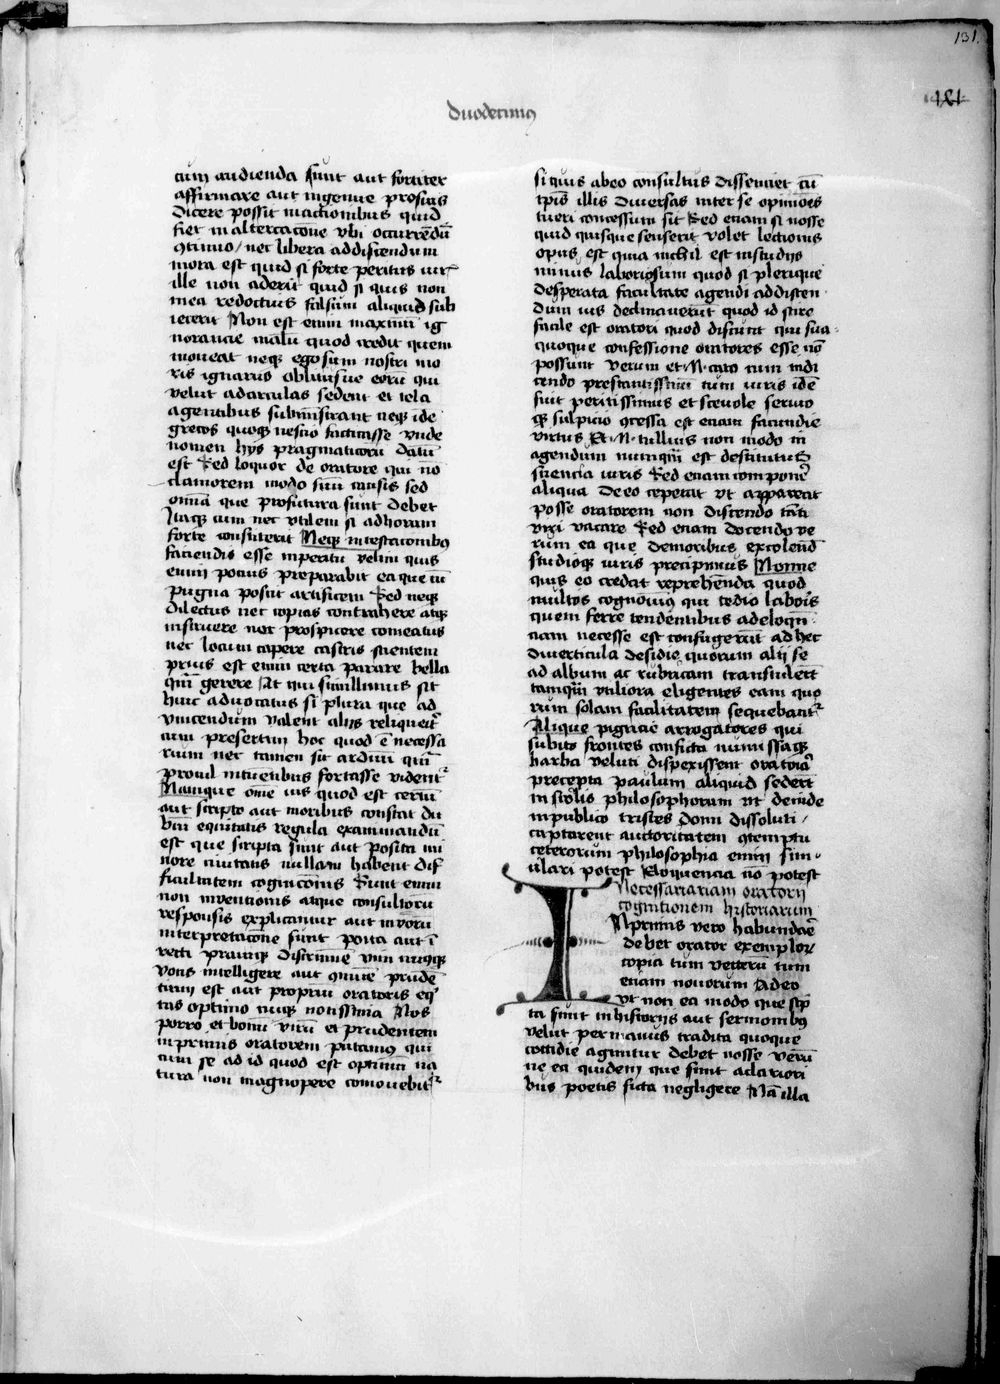 131.
121
duodecimus
cum audienda sunt aut fortiter
affirmare aut ingenue prosius
dicere possit inactionibus quid
fiet in altercacone vbi occurrēdū
ꝯtinuo / nec libera addiscendum
mora est quid si forte peritus iur
ille non aderit quid si quis non
mea redoctius falsum aliquid sub
iecerit Non est enim maximū ig
norancie malū quod credit quem
moueat neqꝫ ego sum nostri mo
ris ignarus oblitusue eorū qui
velut adarculas sedent et tela
agentibus subministrant neqꝫ ide
grecos quoqꝫ nescio factitasse vnde
nomen hijs pragmaticorū datū
est Sed loquor de oratore qui nō
clamorem modo suū causis sed
omīa que profutura sunt debet
Itaqꝫ eum nec vtilem si adhoram
forte constiterit Neqꝫ intestacionibꝰ
faciendis esse inperitū velim quis
enim pocius preparabit ea que cū
pugna possit artificem Sed neqꝫ
dilectus nec copias contrahere atqꝫ
instruere nec prospicere comeatus
nec locum capere castris scientem
prius est enim certa parare bella
qm̄ gerere At qui simillimus sit
huic aduocatus si plura que ad
vincendum valent alijs reliquerit
cum presertim hoc quod ē necessa
rium nec tamen sit arduū quī
procul intuentibus fortasse vident
Namque om̄e ius quod est certū
aut scripto aut moribus constat du
biū equitatis regula examinandū
est que scripta sunt aut posita in
more ciuitatis nullam habent dif
ficultatem cognicōnis Sunt enim
non inuentionis atque consultorū
responsis explicantur aut inuorū
interpretacōne sunt posita aut ī
recti prauiqꝫ discrimine vim cuiusqꝫ
vocis intelligere aut ꝯmūe prudē
tium est aut propriū oratoris eqͥ
tas optimo cuiqꝫ notissima Nos
porro et bonū virū et prudentem
inprimis oratorem putamus qui
cum se ad id quod est optimū na
tura non magnopere comouebit
si quis abeo consultus dissenciet cū
ip̄is illis diuersas inter se opiniōes
tueri concessum sit Sed eciam si nosse
quid quisque senserit volet lectionis
opus est qua nichil est instudijs
minus laboriosum quod si plerique
desperata facultate agendi addiscen
dum ius declinauerūt quod id scire
facile est oratori quod discunt qui sua
quoque confessione oratores esse nō
possunt Verum et .M. cato cum indi
cendo prestantissimū tum iuris idē
fuit peritissimus et sceuole seruio
qꝫ sulpicio ꝯcessa est eciam facundie
virtus Et .M. tullius non modo in
agendum nunqm̄ est destitutus
sciencia iuris Sed eciam componē
aliqua de eo ceperat vt appareat
posse oratorem non discendo tātū
uiri vacare Sed eciam docendo ve
rum ea que demoribus excolend
studioqꝫ iuris precipimus Nonne
quis eo credat reprehēnda quod
multos cognouimꝰ qui tedio laboris
quem ferre tendentibus adeloqn̄
ciam necesse est confugerūt ad hec
diuerticula desidie quorum alij se
ad album ac rubricam transtulert
tamqm̄ vtiliora eligentes eam quo
rum solam facilitatem sequebantr
Alique pigricie arrogatores qui
subito frontes conficta inmissaqꝫ
barba veluti dispexissent oratoria
precepta paulum aliquid sedert
in scolis philosophorum vt deinde
inpublico tristes domi dissoluti /
captarent auctoritatem ꝯtemptu
ceterorum philosophia enim sim
ulari potest Eloquencia nō potest
Necessariariam oratorij
cognitionem historiarum
INprimis vero habundāe
debet orator exemplor
copia tum veterū tum
eciam nouorum Adeo
vt non ea modo que scp̄
ta sunt in historijs aut sermonibꝰ
velut per manus tradita quoque
cottidie aguntur debet nosse verū
ne ea quidem que sunt aclariori
bus poetis ficta negligere Nā illa